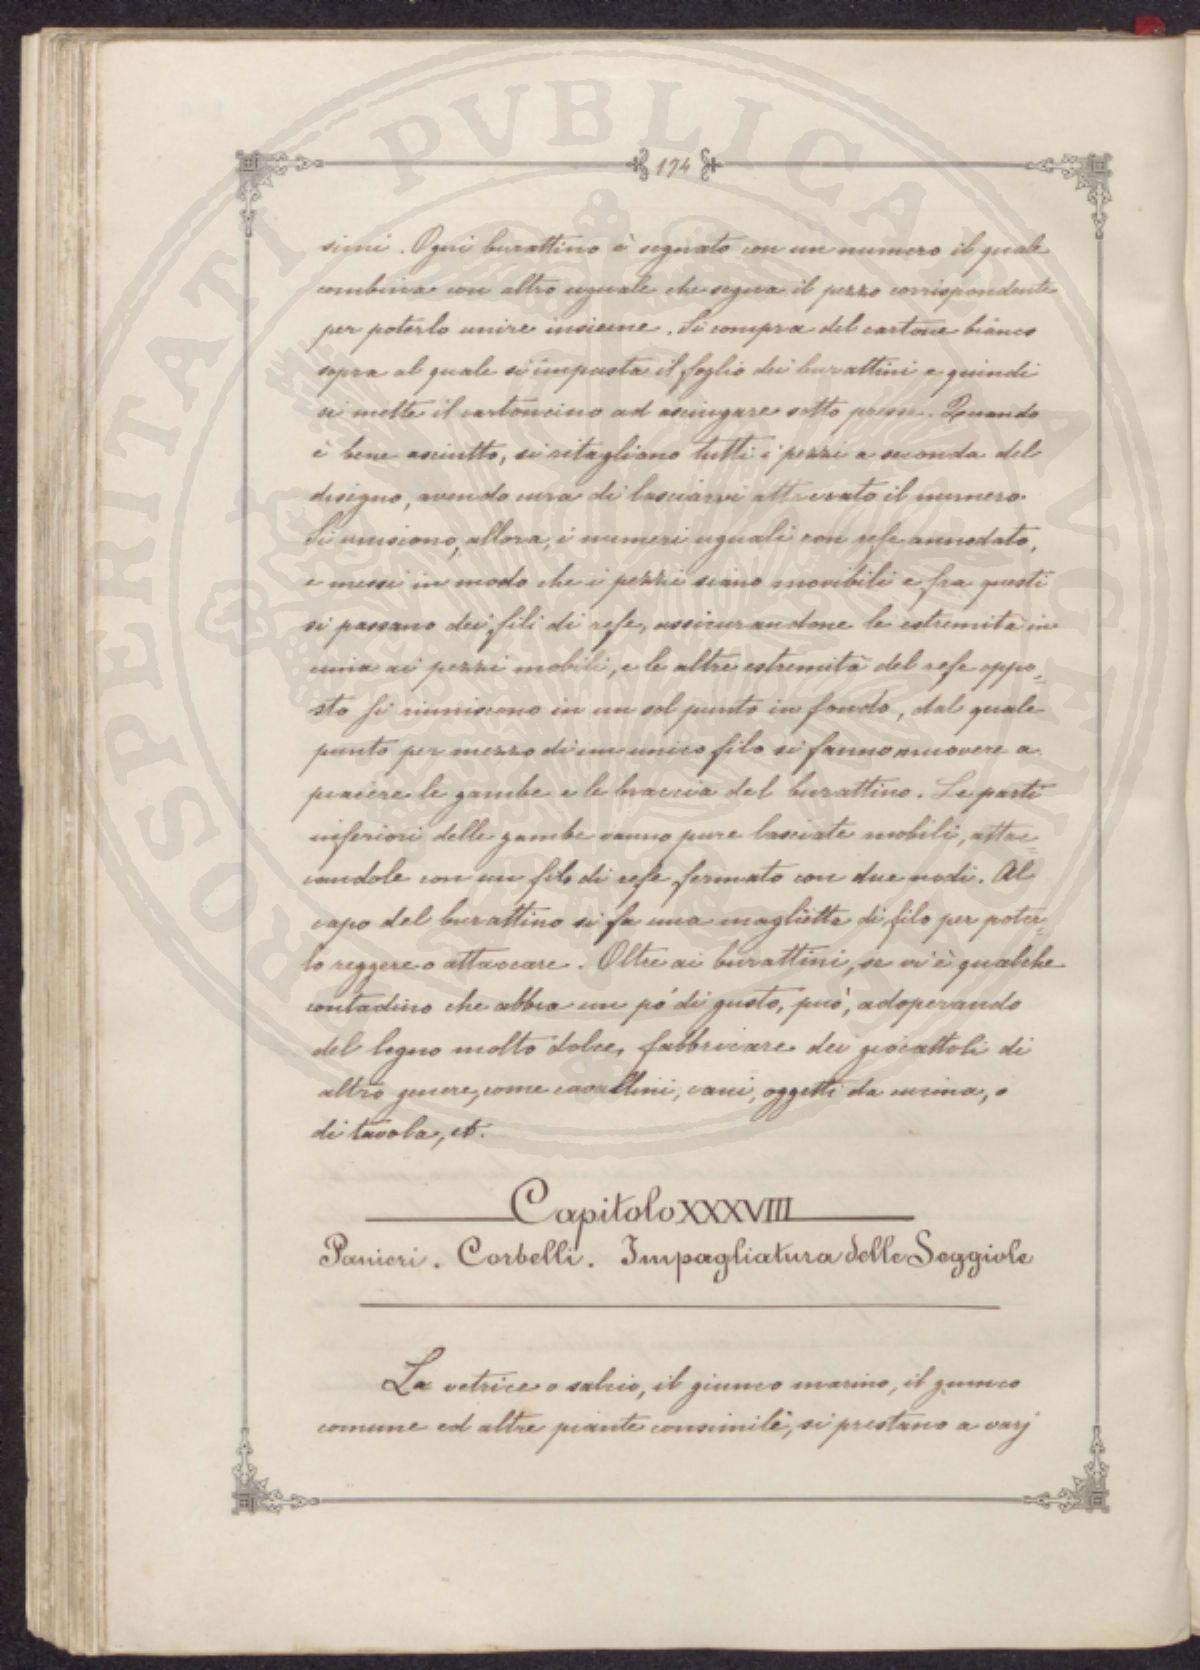 PROSPERITATI PVBLICAE AVGENDAE
174
simi. Ogni burattino è segnato con un numero il quale
combina con altro uguale che segna il pezzo corrispondente
per poterlo unire insieme. Si compra del cartone bianco
sopra al quale si impasta il foglio dei burattini e quindi
si mette il cartoncino ad asciugare sotto presse. Quando
è bene asciutto, si ritagliono tutti i pezzi a seconda del
disegno, avendo cura di lasciarvi attaccato il numero.
Si uniscono, allora, i numeri uguali con refe annodato,
e messi in modo che i pezzi siano movibili e fra questi
si passano dei fili di refe, assicurandone le estremità in
cima ai pezzi mobili, e le altre estremità del refe oppo=
sto si riuniscono in un sol punto in fondo, dal quale
punto per mezzo di un unico filo si fanno muovere a
piacere le gambe e le braccia del burattino. Le parti
inferiori delle gambe vanno pure lasciate mobili, attac=
candole con un filo di refe fermato con due nodi. Al
capo del burattino si fa una maglietta di filo per poter=
lo reggere o attaccare. Oltre ai burattini, se vi è qualche
contadino che abbia un pó di gusto, può, adoperando
del legno molto dolce, fabbricare dei giocattoli di
altro genere, come cavallini, cani, oggetti da cucina, o
di tavola, et.
Capitolo XXXVIII
Panieri. Corbelli. Impagliatura delle Seggiole
La vetrice o salcio, il giunco marino, il giunco
comune ed altre piante consimili, si prestano a varj